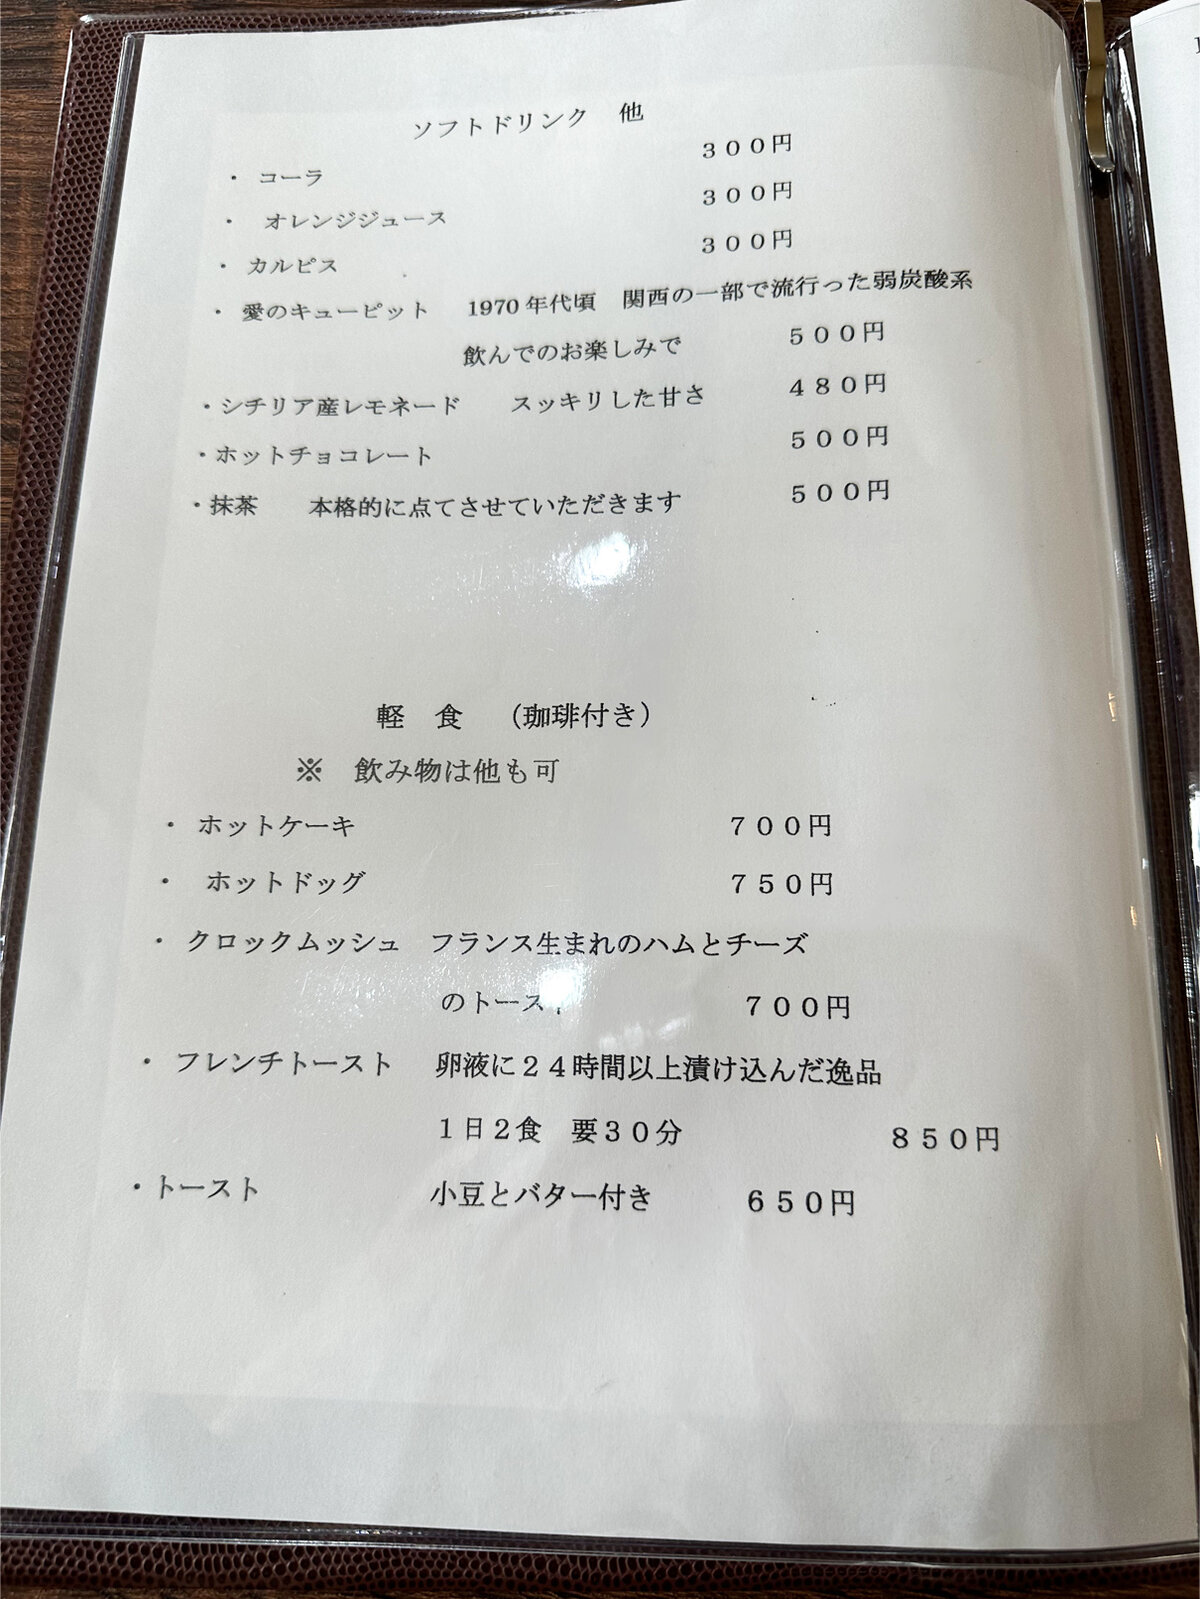 ソフトドリンク 他
・ コーラ 300円
・ オレンジジュース 300円
・ カルピス 300円
・ 愛のキューピット 1970年代頃 関西の一部で流行った弱炭酸系
飲んでのお楽しみで 500円
・シチリア産レモネード スッキリした甘さ 480円
・ホットチョコレート 500円
・抹茶 本格的に点てさせていただきます 500円
軽 食 （珈琲付き）
※ 飲み物は他も可
・ ホットケーキ 700円
・ ホットドッグ 750円
・ クロックムッシュ フランス生まれのハムとチーズ
のトースト 700円
・ フレンチトースト 卵液に24時間以上漬け込んだ逸品
1日2食 要30分 850円
・トースト 小豆とバター付き 650円